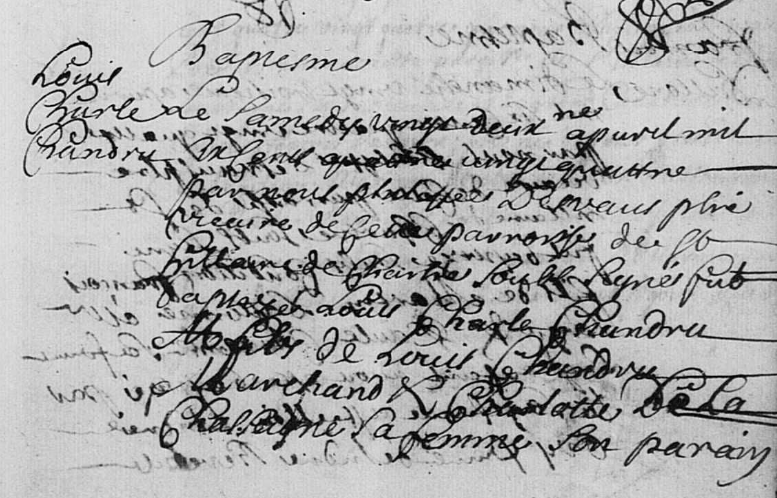 Bapesme
Louis
Charle Le Samedy vingt deux ne apuril mil
Chandru six cents quattre vingt quattre
par nous philippes Desvaus pbre
vicaire de Cette parroisse de St
hillaire de Chartre soubs signé fut
baptizé Louis Charle Chandru
fils de Louis Chandru
Marchand & Charlotte De La
Chassaigne sa femme son parain